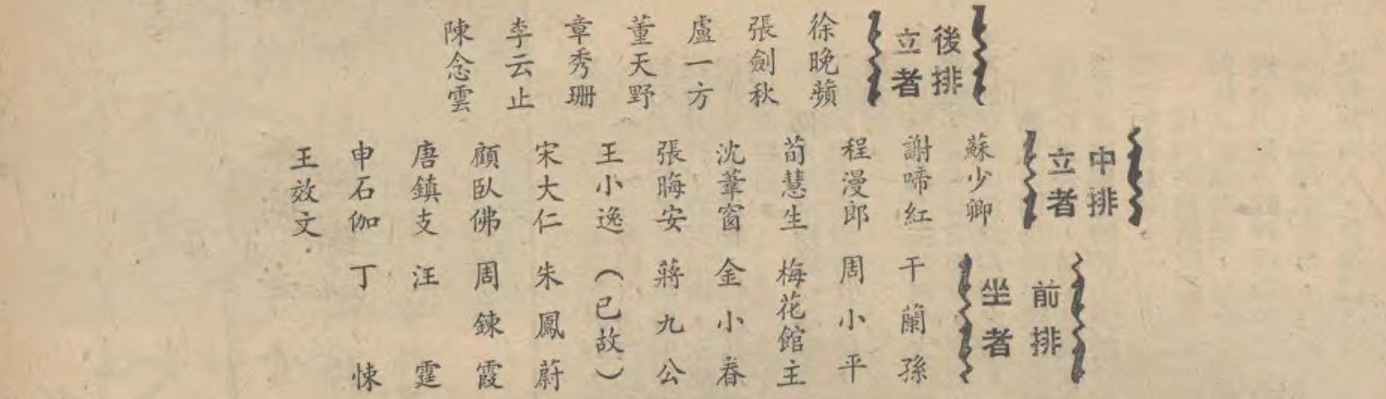 後排
立者
徐晚蘋
張劍秋
盧一方
董天野
章秀珊
李云止
陳念雲
中排
立者
蘇少卿
謝啼紅
程漫郎
荀慧生
沈葦窗
張晦安
王小逸（已故）
宋大仁
顧臥佛
唐鎮支
申石伽
王效文
前排
坐者
干蘭孫
周小平
梅花館主
金小春
蔣九公
朱鳳蔚
周鍊霞
汪霆
丁悚